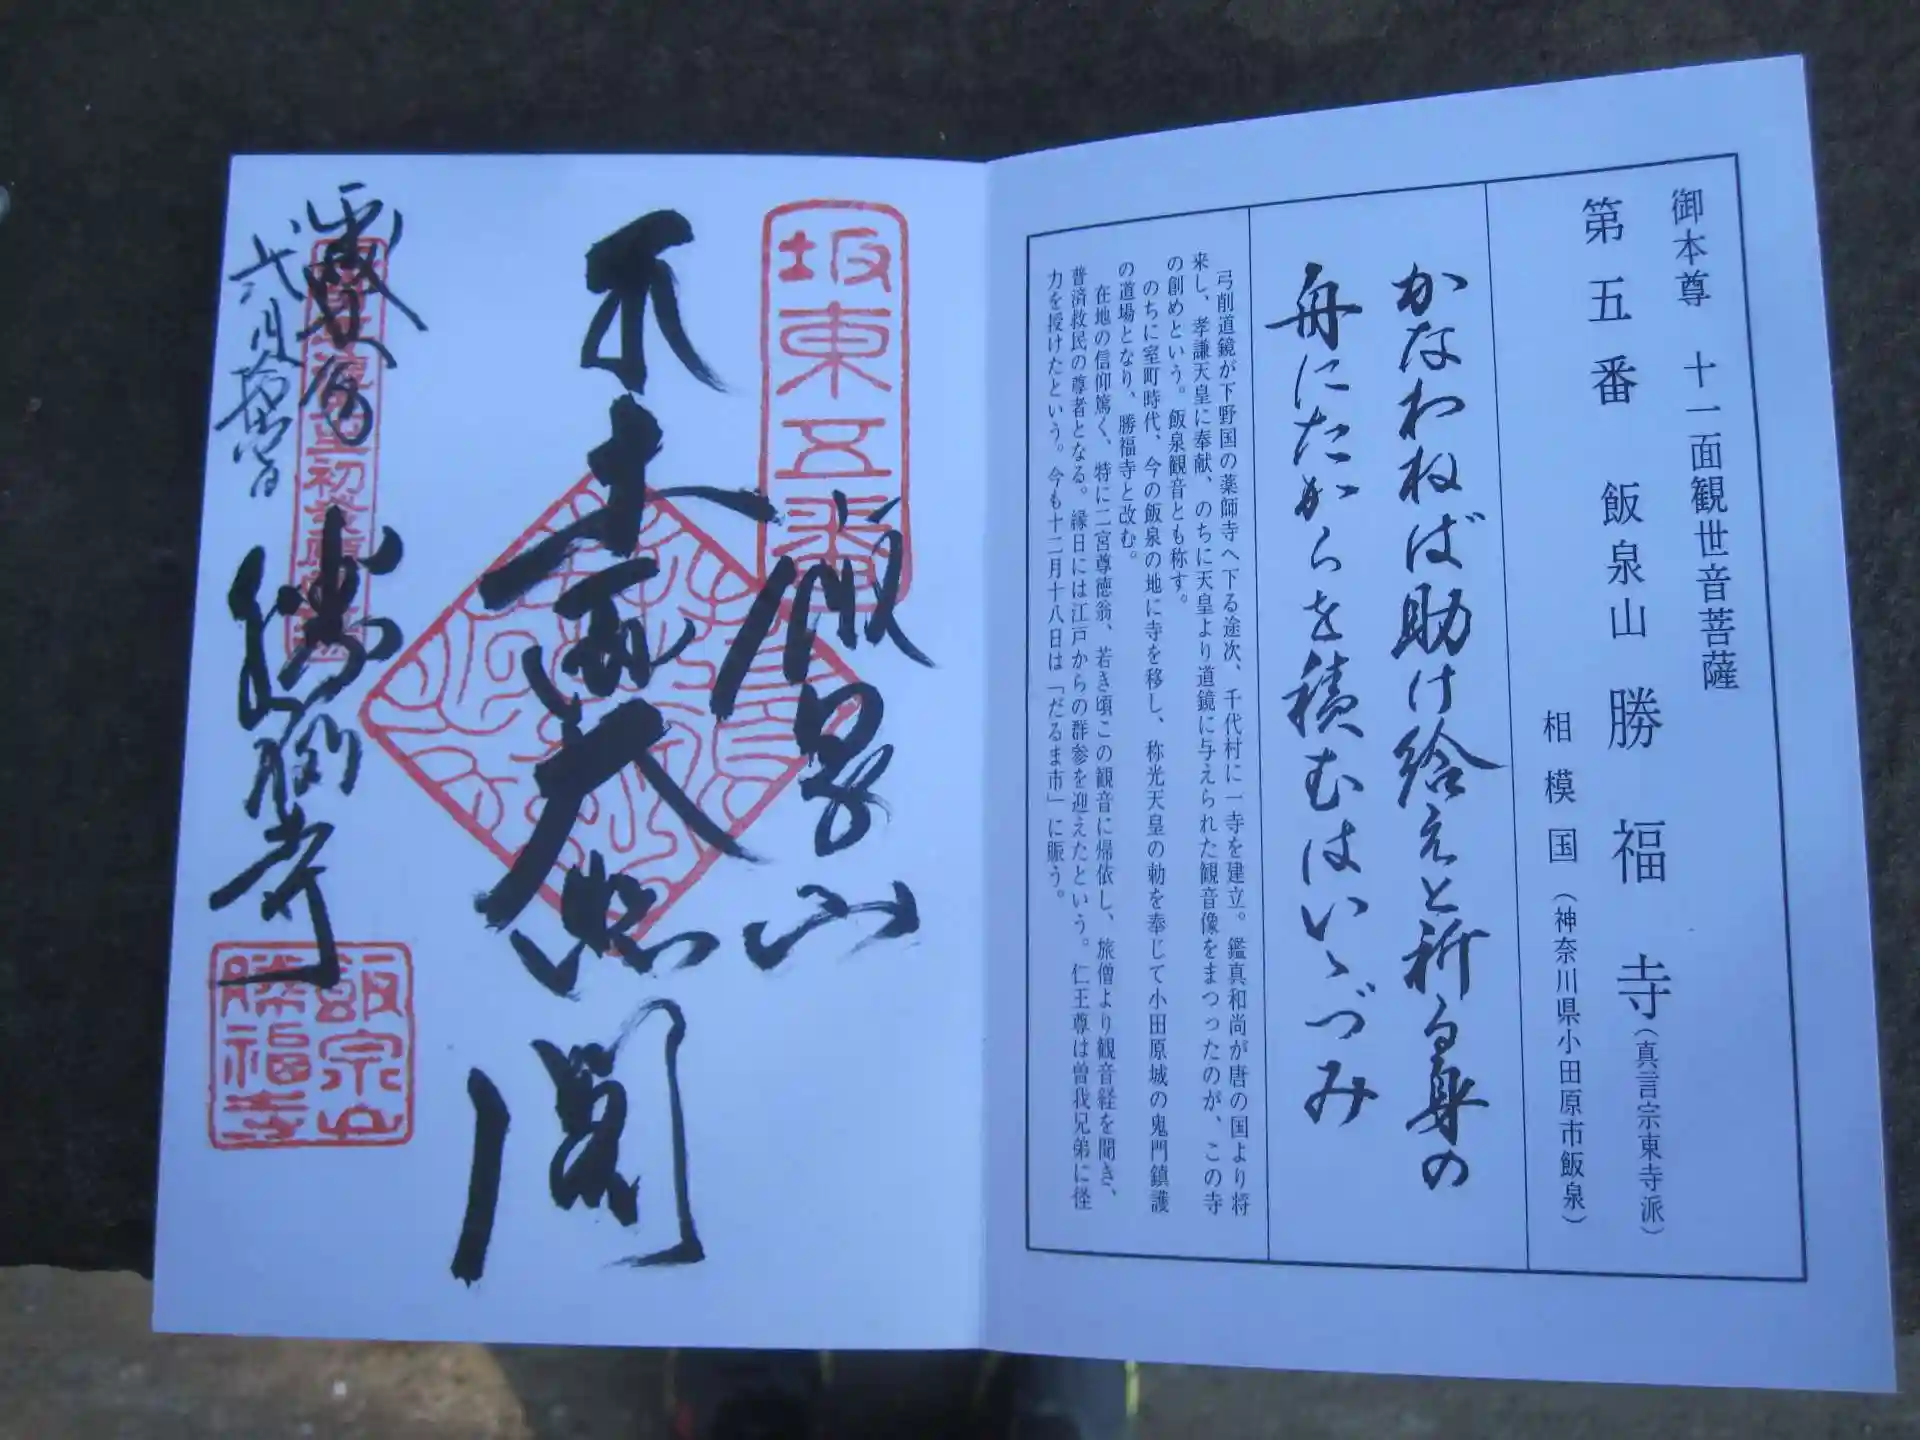 御本尊 十一面観世音菩薩
第五番 飯泉山 勝福寺(真言宗東寺派)
相模国(神奈川県小田原市飯泉)
かなわねば助け給えと祈る身の
舟にたからを積むはいゝづみ
弓削道鏡が下野国の薬師寺へ下る途次、千代村に一寺を建立。鑑真和尚が唐の国より将
来し、孝謙天皇に奉献、のちに天皇より道鏡に与えられた観音像をまつったのが、この寺
の創めという。飯泉観音とも称す。
のちに室町時代、今の飯泉の地に寺を移し、称光天皇の勅を奉じて小田原城の鬼門鎮護
の道場となり、勝福寺と改む。
在地の信仰篤く、特に二宮尊徳翁、若き頃この観音に帰依し、旅僧より観音経を聞き、
普済救民の尊者となる。縁日には江戸からの群参を迎えたという。仁王尊は曽我兄弟に怪
力を授けたという。今も十二月十八日は「だるま市」に賑う。
坂東五番
飯泉山
大悲閣
勝福寺
飯泉山
勝福寺